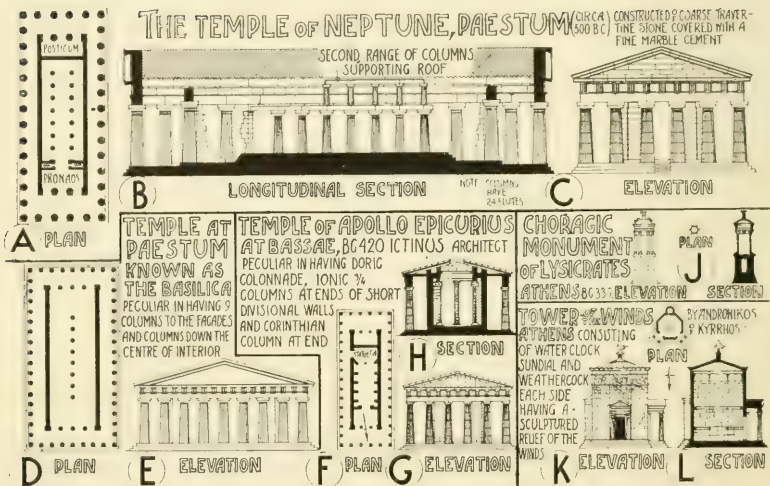 THE TEMPLE OF NEPTUNE, PAESTUM (CIRCA 500 BC)
CONSTRUCTED OF COARSE TRAVER-
TINE STONE COVERED WITH A
FINE MARBLE CEMENT
POSTICUM
PRONAOS
A PLAN
SECOND RANGE OF COLUMNS
SUPPORTING ROOF
B LONGITUDINAL SECTION
NOTE COLUMNS
HAVE
24 FLUTES
C ELEVATION
TEMPLE AT
PAESTUM
KNOWN AS
THE BASILICA
PECULIAR IN HAVING 9
COLUMNS TO THE FAÇADES
AND COLUMNS DOWN THE
CENTRE OF INTERIOR
D PLAN
E ELEVATION
TEMPLE OF APOLLO EPICURIUS
AT BASSAE, BC 420 ICTINUS ARCHITECT
PECULIAR IN HAVING DORIC
COLONNADE, IONIC ¾
COLUMNS AT ENDS OF SHORT
DIVISIONAL WALLS
AND CORINTHIAN
COLUMN AT END
F PLAN
H SECTION
G ELEVATION
CHORAGIC
MONUMENT
OF LYSICRATES
ATHENS BC
ELEVATION
PLAN
J
SECTION
TOWER OF THE WINDS
ATHENS CONSISTING
OF WATER CLOCK
SUNDIAL AND
WEATHERCOCK
EACH SIDE
HAVING A
SCULPTURED
RELIEF OF THE
WINDS
BY ANDRONIKOS
OF KYRRHOS
PLAN
K ELEVATION
L SECTION